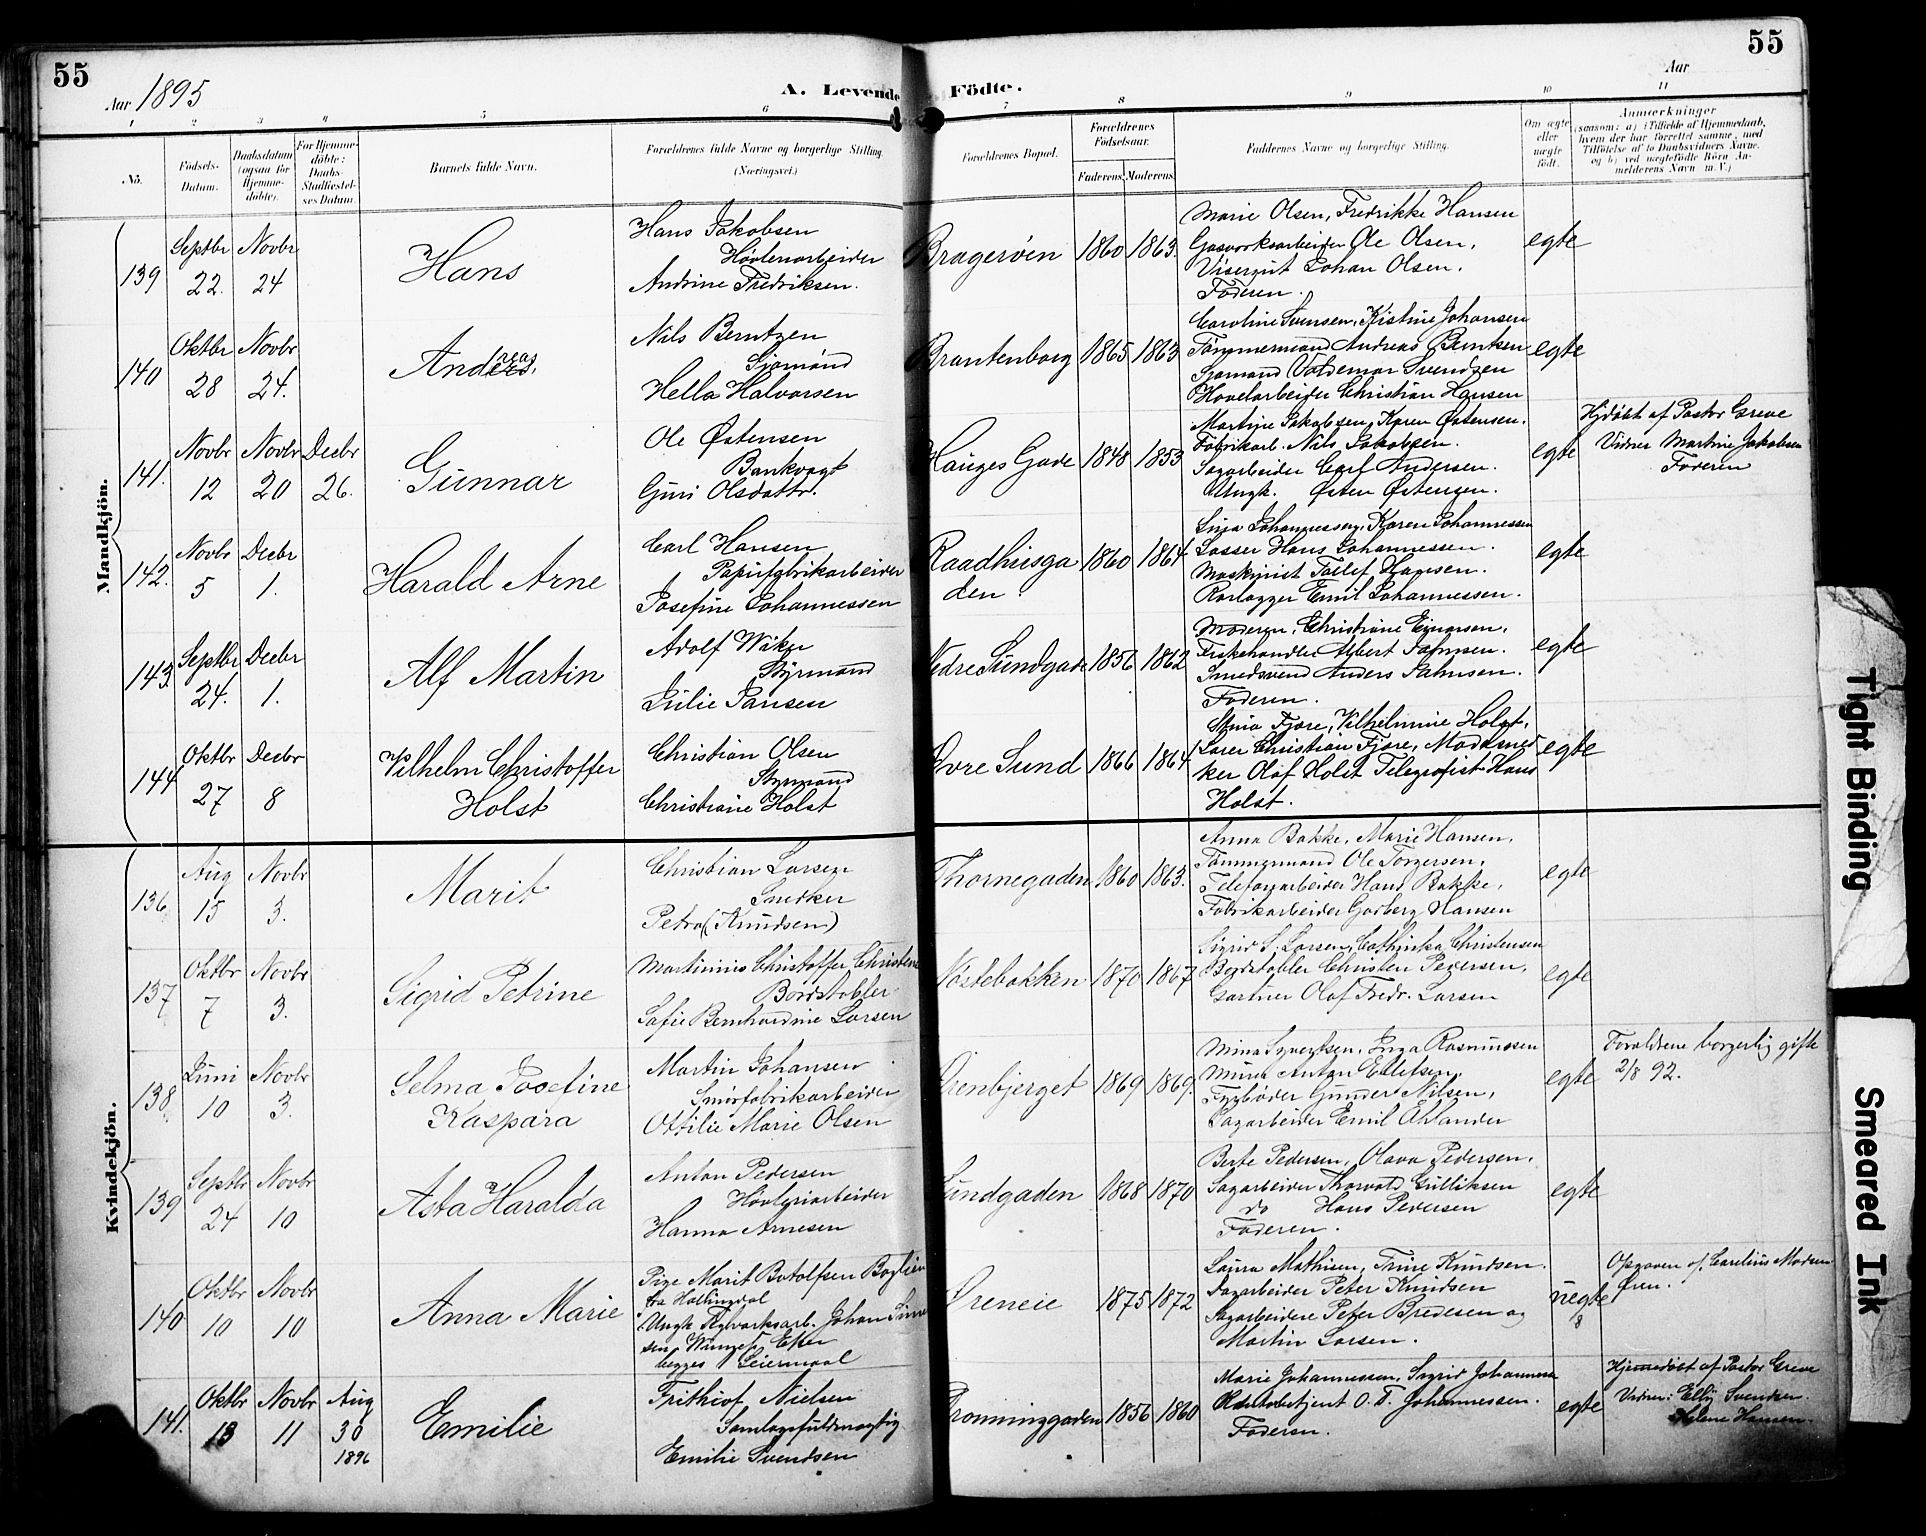 55
Aar 1895
A. Levende Födte.
55
Aar
1 2 3 4 5 6 7 8 9 10 11
No.
Fødsels-
Datum.
Daabsdatum
(ogsaa for
Hjemme-
døbte).
For Hjemme-
døbte:
Daabs-
Stadfæstel-
ses Datum.
Barnets fulde Navn.
Forældrenes fulde Navne og borgerlige Stilling.
(Næringsvei.)
Forældrenes Bopæl.
Forældrenes
Fødselsaar.
Faderens. Moderens.
Faddernes Navne og borgerlige Stilling.
Om ægte
eller
uægte
født.
Anmærkninger
(saasom: a) i Tilfælde af Hjemmedaab,
hvem der har forrettet samme, med
Tilføielse af to Daabsvidners Navne.
og b) ved uægtefødte Börn An-
melderens Navn m. V.)
Mandkjön.
139
Septbr
22
Novbr
24
Hans
Hans Jakobsen
Høvlerarbeider
Andrine Fredriksen.
Bragerøen
1860 1863.
Marie Olsen, Fredrikke Hansen
Gasverksarbeider Ole Olsen,
Visergut Johan Olsen.
Faderen.
egte
140
Oktbr
28
Novbr
24.
Andreas
Nils Berntzen
Sjømand
Hella Halvorsen
Brantenborg
1865 1863
Caroline Svensen, Kistine Johansen
Tømmermand Andreas Berntsen
Sjømand Valdemar Svendsen
Høvelarbeider Christian Hansen
egte
141.
Novbr
12
Novbr
20
Decbr
26.
Gunnar
Ole Østensen
Bankvagt
Guri Olsdattr.
Hauges Gade
1848 1853
Martine Jakobsen, Karen Østensen.
Fabrikarb. Nils Jakobsen.
Sagarbeider Carl Andersen.
Ungk. Østen Østensen.
egte
Hjdøbt af Pastor Greve
Vidner Martine Jakobsen
Faderen
142.
Novbr
5
Decbr
1.
Harald Arne
Carl Hansen
Papirfabrikarbeider
Josefine Johannessen
Raadhusga
den
1860 1864
Lina Johannessen, Karen Johannessen
Lasser Hans Johannessen.
Maskinist Tollef Hansen.
Rørlægger Emil Johannessen.
egte
143.
Septbr
24.
Decbr
1.
Alf Martin
Adolf Wiker
Styrmand
Julie Jansen
Nedre Sundgade
1856 1862
Moderen, Christiane Einarsen,
Fiskehandler Albert Jahnsen.
Smedsvend Anders Jahnsen.
Faderen.
egte
144
Oktbr
27
Decbr
8
Vilhelm Christoffer
Holst
Christian Olsen
Styrmand
Christiane Holst
Øvre Sund
1866 1864
Stina Fjøre, Vilhelmine Holst,
Lærer Christian Fjøre, Modersned
ker Olaf Holst Telegrafist Hans
Holst.
egte
Kvindekjön.
136
Aug
15
Novbr
3.
Marit
Christian Larsen
Snedker
Petra (Knudsen)
Thornegaden
1860 1863.
Anna Bakke, Marie Hansen,
Tømmermand Ole Torgersen,
Telefonarbeider Hans Bakke,
Fabrikarbeider Godberg Hansen
egte
137
Oktbr
7
Novbr
3.
Sigrid Petrine
Martinius Christoffer Christens
Bordstabler
Sofie Bernhardine Larsen
Nøstebakken
1870 1867
Sigrid S. Larsen, Cathinka Christensen
Bordstabler Christen Pedersen,
Gartner Olaf Fredr. Larsen
egte
138.
Juni
10
Novbr
3.
Selma Josefine
Kaspara
Martin Johansen
Smørfabrikarbeider
Ottilie Marie Olsen
Ørenbjerget
1869 1869.
Mina Syvertsen, Inga Rasmussen
Murer Anton Ellefsen,
Fyrbøder Gunder Nilsen,
Sagarbeider Emil Ahlander
egte
Forældrene borgerlig gifte
2/8 92.
139
Septbr
24
Novbr
10
Asta Haralda
Anton Pedersen
Høvleriarbeider
Hanna Arnesen
Sundgaden
1868 1870
Berte Pedersen, Olava Pedersen,
Sagarbeider Thorvald Gulliksen
do Hans Pedersen
Faderen.
egte
140
Oktbr
10
Novbr
10
Anna Marie
Pige Marit Botolfsen Boglien
fra Hallingdal
Ungk Teglværksarb. Johan Simen
sen Eker
begges 1 Leiermaal
Øreneie
1875 1872
Laura Mathisen, Trine Knudsen.
Sagarbeider Peter Knudsen
Sagarbeidere Peter Bredesen og
Martin Larsen.
uegte
Opgaven af Carelius Madsen
Øren.
141.
Oktbr
13
Novbr
11
Aug
30
1896
Emilie
Frithiof Nielsen
Samlagsfuldmægtig
Emilie Svendsen
Dronninggaden
1856 1860
Marie Johannessen, Sigrid Johannessen
Raadstubetjent O. T. Johannessen.
Faderen.
egte
Hjemmedøbt af Pastor Greve
Vidner: Elly Svendsen.
Helene Hansen.
Tight Binding
Smeared Ink